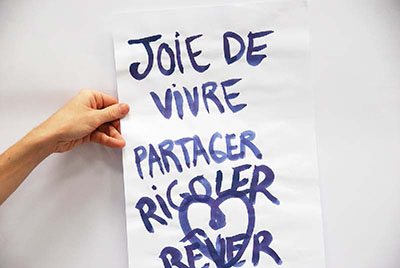 JOiE DE
ViVRE
PARTAGER
RiGOLER
RÊVER